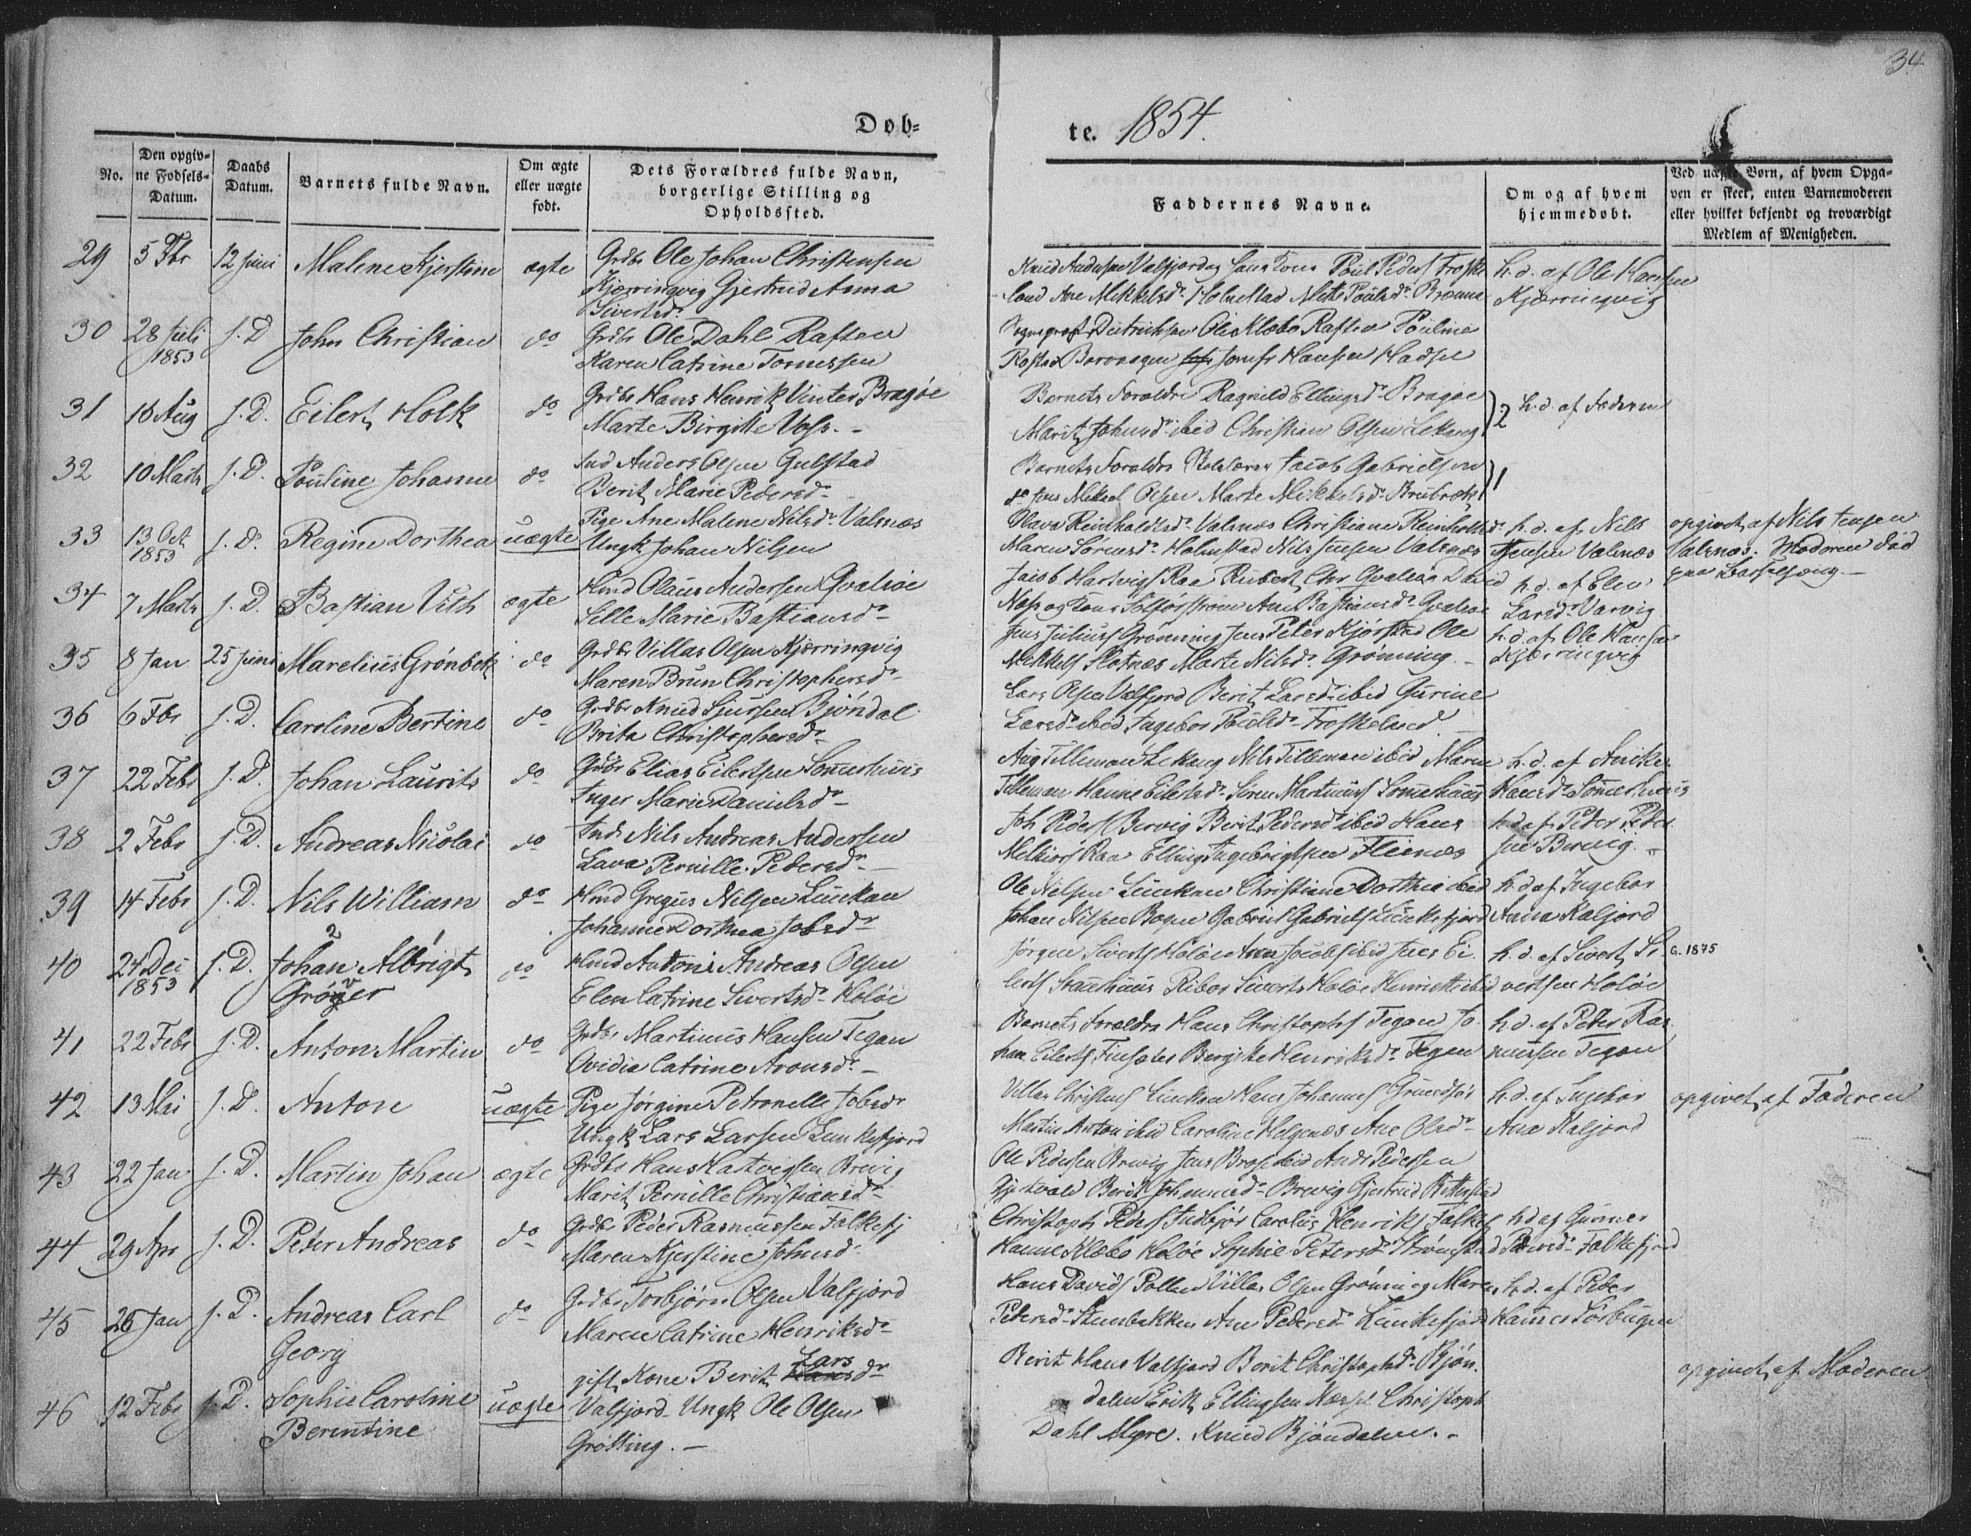 34
Døb-
te. 1854.
No.
Den opgiv-
ne Fødsels-
Datum.
Daabs
Datum.
Barnets fulde Navn.
Om ægte
eller uægte
født.
Dets Forældres fulde Navn,
borgerlige Stilling og
Opholdssted.
Faddernes Navne.
Om og af hvem
hjemmedøbt.
Ved uægte Børn, af hvem Opga-
ven er skeet, enten Barnemoderen
eller hvilket bekjendt og troværdigt
Medlem af Menigheden.
29 5 Fbr 12 Juni Malene Kjerstine ægte Grdbr Ole Johan Christensen
Kjærringvig Gjertrud Anna
Sivertsdr
Knud Andersen Valfjord og hans Kone Poul Peders Froske
land Ane Mikkelsdr Holmstad Mette Poulsdr
h.d. af Ole Hansen
Kjærringvig
30 28 Juli 1853 J. D. John Christian do Grdbr Ole Dahl Raften
Karen Catrine Tomessen
Dietrichsen Ole Klæbo Raften Pouline
Hansen Hadsel
31 18 Aug J. D. Eilert Holk do Grdbr Hans Henrik Vinter Bragøe
Marte Birgitte Voss. -
Barnets Forældre Ragnild Ellingsdr Bragøe
Marit Johnsdr ibid Christian Olsen Lekang
2 h.d. af Faderen
32 10 Marts J. D. Pouline Johanne do Ind Anders Olsen Gulstad
Berit Marie Pedersdr
Barnets Forældre Skolelærer Jacob Gabrielsen
do Jens Mikal Olsen Marte Mikkelsdr
1
33 13 Oct 1853 J. D. Regine Dorthea uægte Pige Ane Malene Nilsdr Valsnæs
Ungk Johan Nilsen
Olava Reinholdtsdr Valsnæs Christiane Reinholdtsdr
Maren Sørensdr Holmstad Nils Jensen Valsnæs
h.d. af Nils
Jensen Valsnæs
opgivet af Nils Jensen
Valsnæs. Moderen død
paa Barselseng. -
34 7 Marts J. D. Bastian Vith ægte Hmd Olaus Andersen Qvalsøe
Sille Marie Bastiansdr
Jacob Hartvigs Raa Rubert Chr Qvalsøe David
Næss og Kone Ane Bastiansdr Qvalsøe
h.d. af Elen
Larsdr Varvig
35 8 Jan 25 Juni Marelius Grønbek do Grdbr Villas Olsen Kjærringvig
Maren Brun Christophersdr
Jens Julius Grønning Jens Peter Kjørstad Ole
Mikkels Slotnæs Marte Nilsdr Grønning -
h.d. af Ole Hansen
Kjærringvig
36 6 Fbr J. D. Caroline Bertine do Grdbr Knud Sjursen Bjøndal
Brita Christophersdr
Lars Olsen Valfjord Berit Larsdr ibid Gurine
Larsdr ibid Ingebor Poulsdr Froskeland
37 22 Febr J. D. Johan Laurits do Grdbr Elias Eilertsen Somerhuus
Inger Marie Danielsdr
Aug Tilleman Lekang Nils Tilleman ibid Maren
Tilleman Hanne Eilertsdr Søren Martinus Somerhuus
h.d. af Anike
Hansdr Somerhuus
38 2 Febr J. D. Andreas Nicolai do Inds Nils Andreas Andersen
Lava Pernille Pedersdr
Joh Peders Brevig Berit Pedersdr ibid Hans
Melkiors Raa Elling Ingebrigtsen Flenæs
h.d. af Peder Peder
sen Brevig. -
39 14 Febr J. D. Nils William do Hmd Gregus Nilsen Lunkan
Johanne Dorthea Jobsdr
Ole Nilsen Lunkan Christiane Dorthea ibid
Johan Nilsen Bogen Gabriel Gabriels Lunkefjord
h.d. af Ingebor
Anna Kaljord
40 24 Dec 1853 J. D. Johan Albrigt
Grøger
do Hmd Antoni Andreas Olsen
Elen Catrine Sivertsdr Holøe
Jørgen Siverts Holøe Ane Jacobs ibid Jens Ei-
lerts Staurhuus Ribor Siverts Holøe Henriette ibid
h.d. af Sivert Si-
vertsen Holøe
G. 1875
41 22 Febr J. D. Anton Martin do Grdbr Martinus Hansen Tegan
Ovidia Catrine Aronsdr -
Barnets Forældre Hans Christophs Tegan Jo-
han Eilerts Finsæter Bergitte Henriksdr Tegan
h.d. af Peter Ras-
mussen Tegan
42 13 Mai J. D. Anton uægte Pige Jørgine Petronelle Jobsdr
Ungk Lars Larsen Lunkefjord
Villas Christens Lunkan Hans Johannes Grundfør
Martin Anton ibid Caroline Helgenæs Ane Olsdr
h.d. af Ingebor
Ana Kaljord
opgivet af Faderen
43 22 Jan J. D. Martin Johan ægte Grdbr Hans Hartvigsen Brevig
Marit Pernille Christiansdr
Ole Pedersen Brevig Jens Bros ibid Ands Pedersen
Berit Johnsdr Brevig Gjertrud
44 29 Apr J. D. Peter Andreas do Grdbr Peder Rasmussen Falkefj
Maren Kjerstine Johnsdr
Christoph Peders Indbjør Carolus Henriks Falkefj
Hanne Klæbo Holøe Sophie Petersdr
h.d. af Gunner
Falkefjord
45 26 Jan J. D. Andreas Carl
Georg
do Grdbr Torbjørn Olsen Valfjord
Maren Catrine Henriksdr
Hans Davids Pollen Villas Olsen Grønning Maren
Pedersdr Steenbakken Ane Pedersdr Lunkefjord
h.d. af Peder
Hansen Sørbugen
46 12 Febr J. D. Sophie Caroline
Berentine
uægte gift Kone Berit Lars
dr
Valfjord Ungk Ole Olsen
Grøtting. -
Berit Hans Valfjord Berit Christophdr Bjøn-
dalen Erik Ellingsen Christoph
Dahl Myre. Knud Bjøndalen. -
opgivet af Moderen